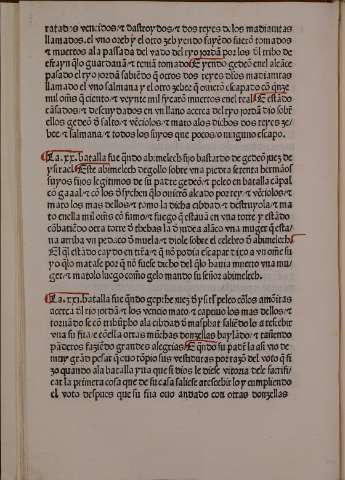 ratados vencidos ⁊ dastroydos ⁊ dos reyes de los madianitas
llamados. el vno oreb y el otro zeb yendo fuyẽdo fuerõ tomados
⁊ muertos ala passada del vado del ryo jordã por los đl tribo de
efrayn q̃lo guardauã ⁊ teniã tomado E yendo gedeõ enel alcãce
pasado el ryo jordã sabiẽdo q̃ otros dos reyes đlos madianitas
llamado el vno salmana y el otro zebee q̃ uinierõ escapado cõ q̃nze
mil oms̃ q̃ ciento ⁊ veynte mil fuerarõ muertos enel real E estãdo
cãsados ⁊ descuydados en vn llano acerca del ryo jordã dio sobr̃
ellos gedeõ đ salto ⁊ vẽciolos ⁊ mato alos dichos dos reyes ze/
bee ⁊ salmana ⁊ todos los suyos que pocos/o ninguno escapo.
La .xx. batalla fue q̃ndo abimelech fijo bastardo de gedeõ juez de
ysrael Este abimelech degollo sobre vna piedra setenta hermãos
suyos fijos legitimos de su padre gedeõ ⁊ peleo en batalla cãpal
cõ gaaal ⁊ cõ los đ sychen q̃lo quierõ alçado por rey ⁊ vẽciolos ⁊
mato los mas dellos ⁊ tomo la dicha cibdad ⁊ destruyola ⁊ ma
to enella mill oms̃ cõ fumo ⁊ fuego q̃ estauã en vna torre y estãdo
cõbatiẽdo otra torre đ thebas la đ judea alãço vna muger q̃ esta/
ua arriba vn pedaço đ muela ⁊ diole sobre el celebro đ abimelech
El q̃l estãdo caydo en trr̃a ⁊ q̃ nõ podia escapar dixo a vn oms̃ su
yo q̃lo matase por q̃ nõ fuese dicho del q̃lo hauia muerto vna mu/
ger ⁊ matolo luego como gelo mando su señor abimelech.
La .xxi. batalla fue q̃ndo gepthe juez đ ysrl̃ peleo cõlos amõitas
acerca đl rio jordã ⁊ los vencio mato ⁊ captiuo los mas dellos ⁊
tornãdo se cõ triũpho ala cibdad đ masphat saliẽdo lo a rescebir
vna su fija ⁊ cõella otras muchas donzellas baylãdo ⁊ tañiendo
pãderos faziẽdo grandes alegrias E q̃ndo su padr̃ la asi vio de
muy grãd pesar q̃ cuo rõpio sus vestiduras por razõ del voto q̃ fi
zo quando ala batalla yua que si dios le diese vitoria đle sacrifi/
car la primera cosa que de su casa saliese a rescebir lo y cumpliendo
el voto despues que su fija ouo andado con otras donzellas